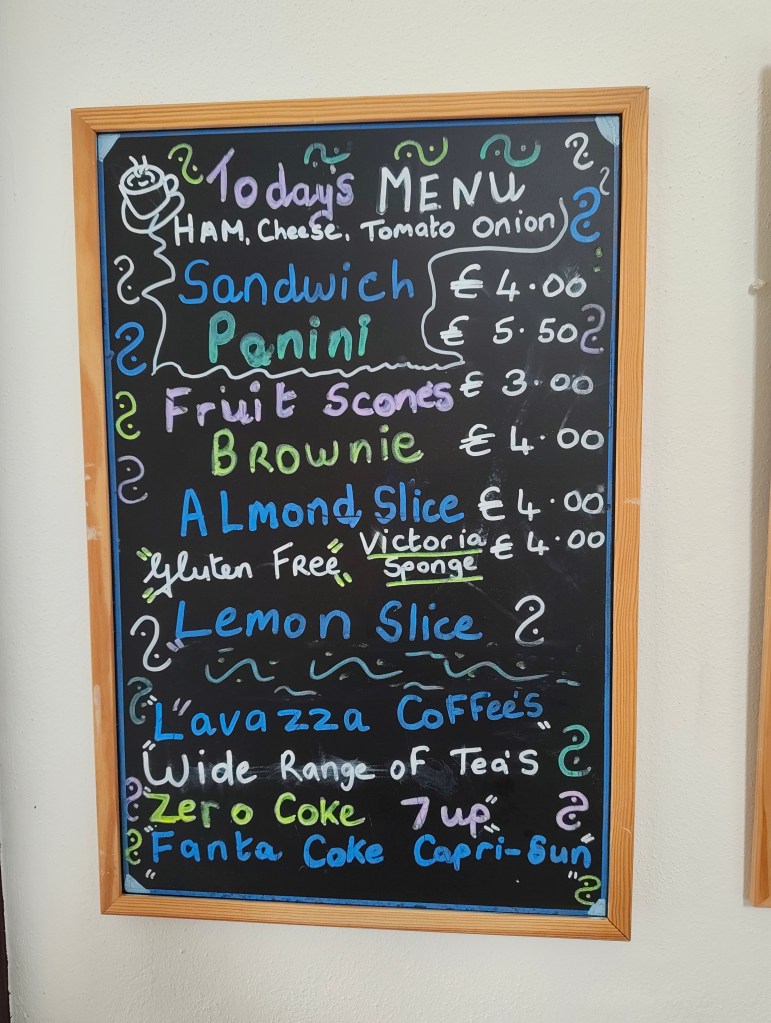 Todays MENU
HAM, Cheese, Tomato Onion
Sandwich € 4.00
Panini € 5.50
Fruit Scones € 3.00
Brownie € 4.00
Almond Slice € 4.00
"Gluten Free" Victoria Sponge € 4.00
Lemon Slice
"Lavazza Coffee's"
"Wide Range of Tea's
"Zero Coke 7up"
"Fanta Coke Capri-Sun"